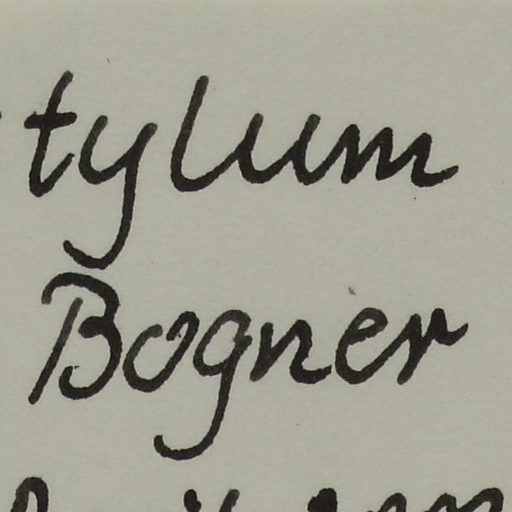 tylum
Bogner